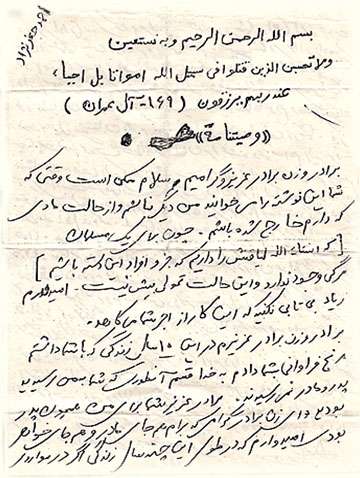 احمد جعفرنژاد
بسم الله الرحمن الرحیم و به نستعین
ولا تحسبن الذین قتلوا فی سبیل الله امواتا بل احیاء
عند ربهم یرزقون (۱۶۹- آل عمران)
«وصیتنامه»
برادر و زن برادر عزیز و گرامیم سلام ممکن است وقتی که
شما این نوشته را می خوانید من دیگر نباشم و از حالت مادی
که دارم خارج شده باشم. چون برای یک مسلمان
[که انشاء الله لیاقتش را داریم که جزو افراد این مکتب باشیم]
مرگی وجود ندارد و این حالت تحولی بیش نیست. امیدوارم
زیاد بی تابی نکنید که این کار از اجر شما می کاهد.
برادر و زن برادر عزیزم در این ۱۰ سال زندگی که با شما داشتم
رنج فراوانی بشما دادم به خدا قسم آنطوری که شما به من رسیدید
پدر و مادر نمی رسیدند. برادر عزیز شما برای من همچون پدر
بودید و ای زن برادر گرامی که برایم هم جای مادر و هم جای خواهر
بودی امیدوارم که در طول این چند سال زندگی اگر در مواردی